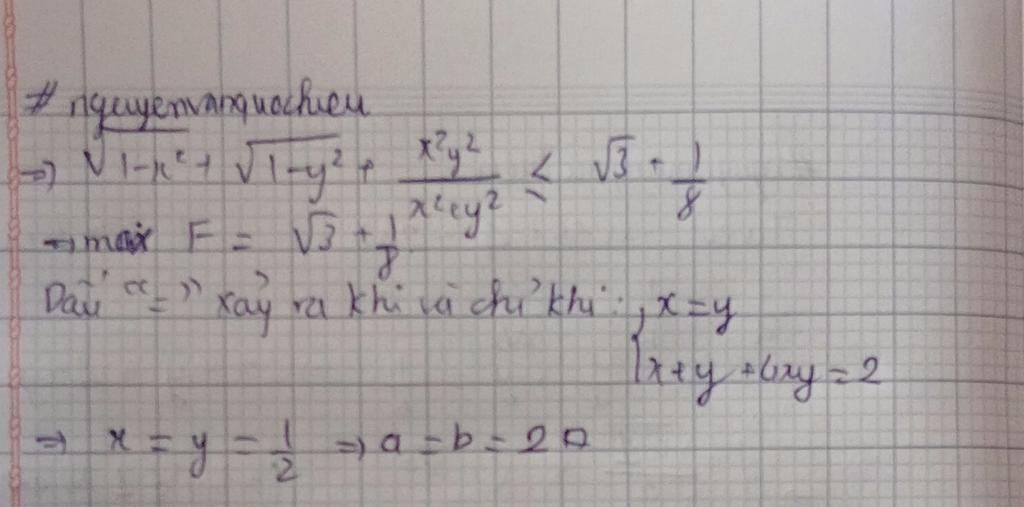 # nguyenvanquochieu
⇒ √(1-x²) + √(1-y²) + x²y²/(x²+y²) ≤ √3 + 1/8
⇒ max F = √3 + 1/8
Dấu "=" xảy ra khi và chỉ khi: { x = y
x + y + 4xy = 2
⇒ x = y = 1/2 ⇒ a = b = 2 □